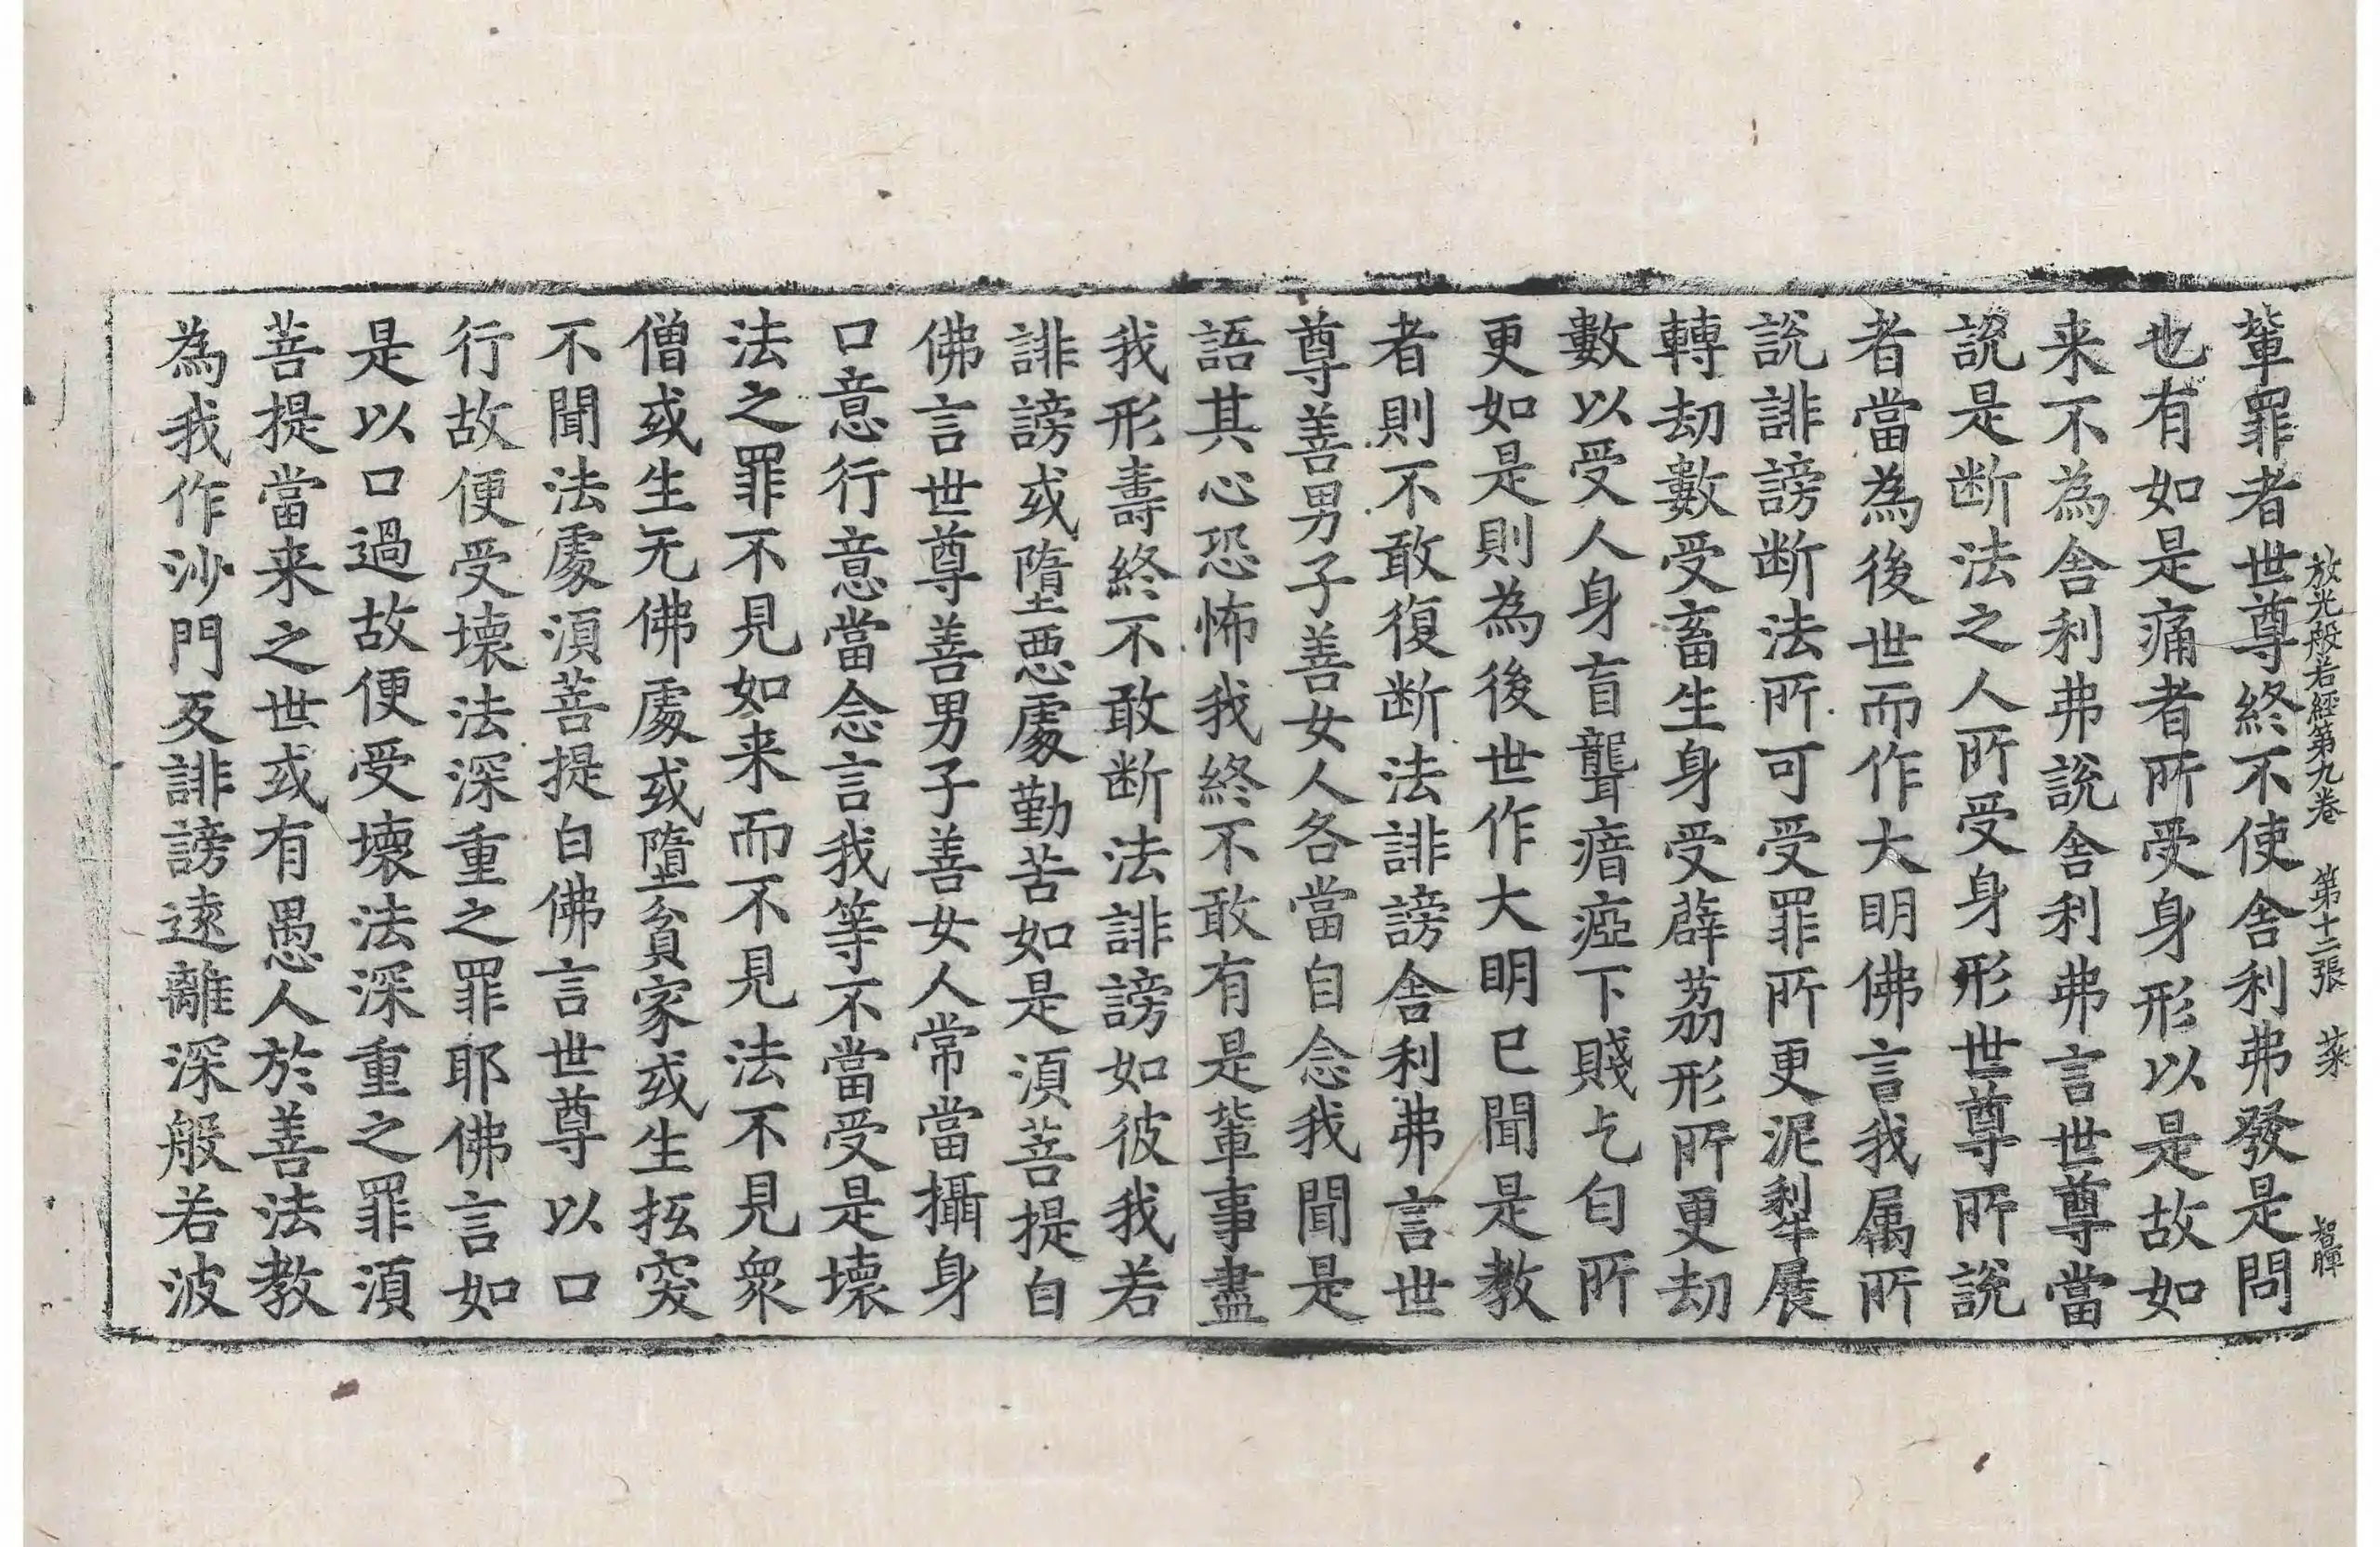 放光般若經第九卷 第十二張 菜 智暉
輩罪者世尊終不使舍利弗發是問
也有如是痛者所受身形以是故如
来不為舍利弗說舍利弗言世尊當
說是断法之人所受身形世尊所說
者當為後世而作大明佛言我属所
說誹謗断法所可受罪所更泥犁展
轉劫數受畜生身受薜荔形所更劫
數以受人身盲聾瘖瘂下賤乞匂所
更如是則為後世作大明已聞是教
者則不敢復断法誹謗舍利弗言世
尊善男子善女人各當自念我聞是
語其心恐怖我終不敢有是輩事盡
我形壽終不敢断法誹謗如彼我若
誹謗或墮惡處勤苦如是湏菩提白
佛言世尊善男子善女人常當攝身
口意行意當念言我等不當受是壞
法之罪不見如来而不見法不見衆
僧或生无佛處或墮貧家或生抏突
不聞法處湏菩提白佛言世尊以口
行故便受壞法深重之罪耶佛言如
是以口過故便受壞法深重之罪湏
菩提當来之世或有愚人於善法教
為我作沙門反誹謗遠離深般若波